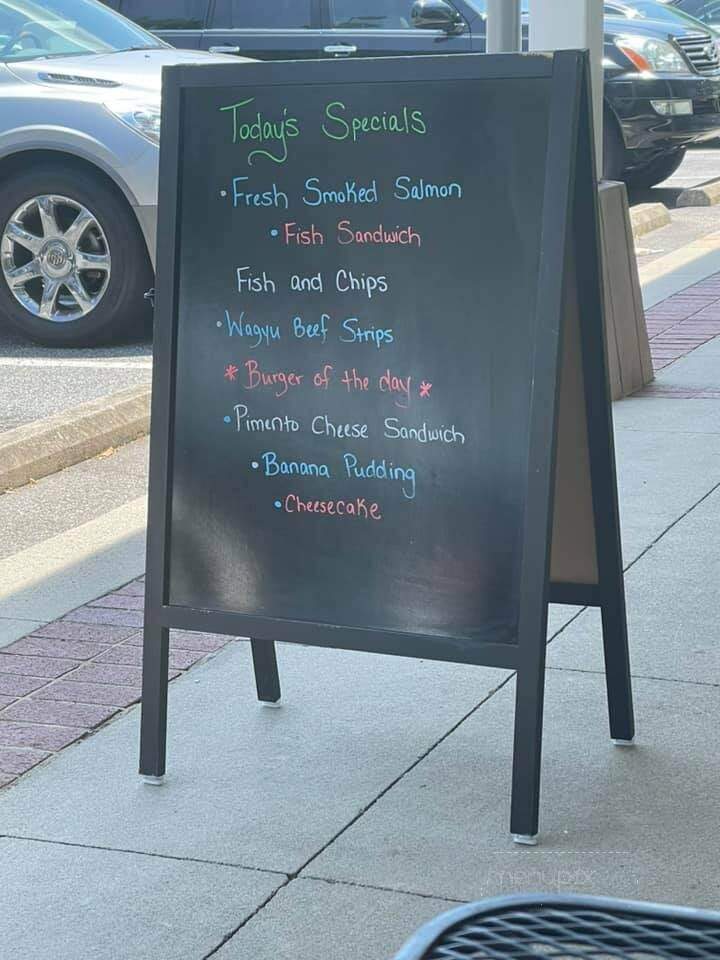 Today's Specials
• Fresh Smoked Salmon
• Fish Sandwich
Fish and Chips
• Wagyu Beef Strips
* Burger of the day *
• Pimento Cheese Sandwich
• Banana Pudding
• Cheesecake
menupix